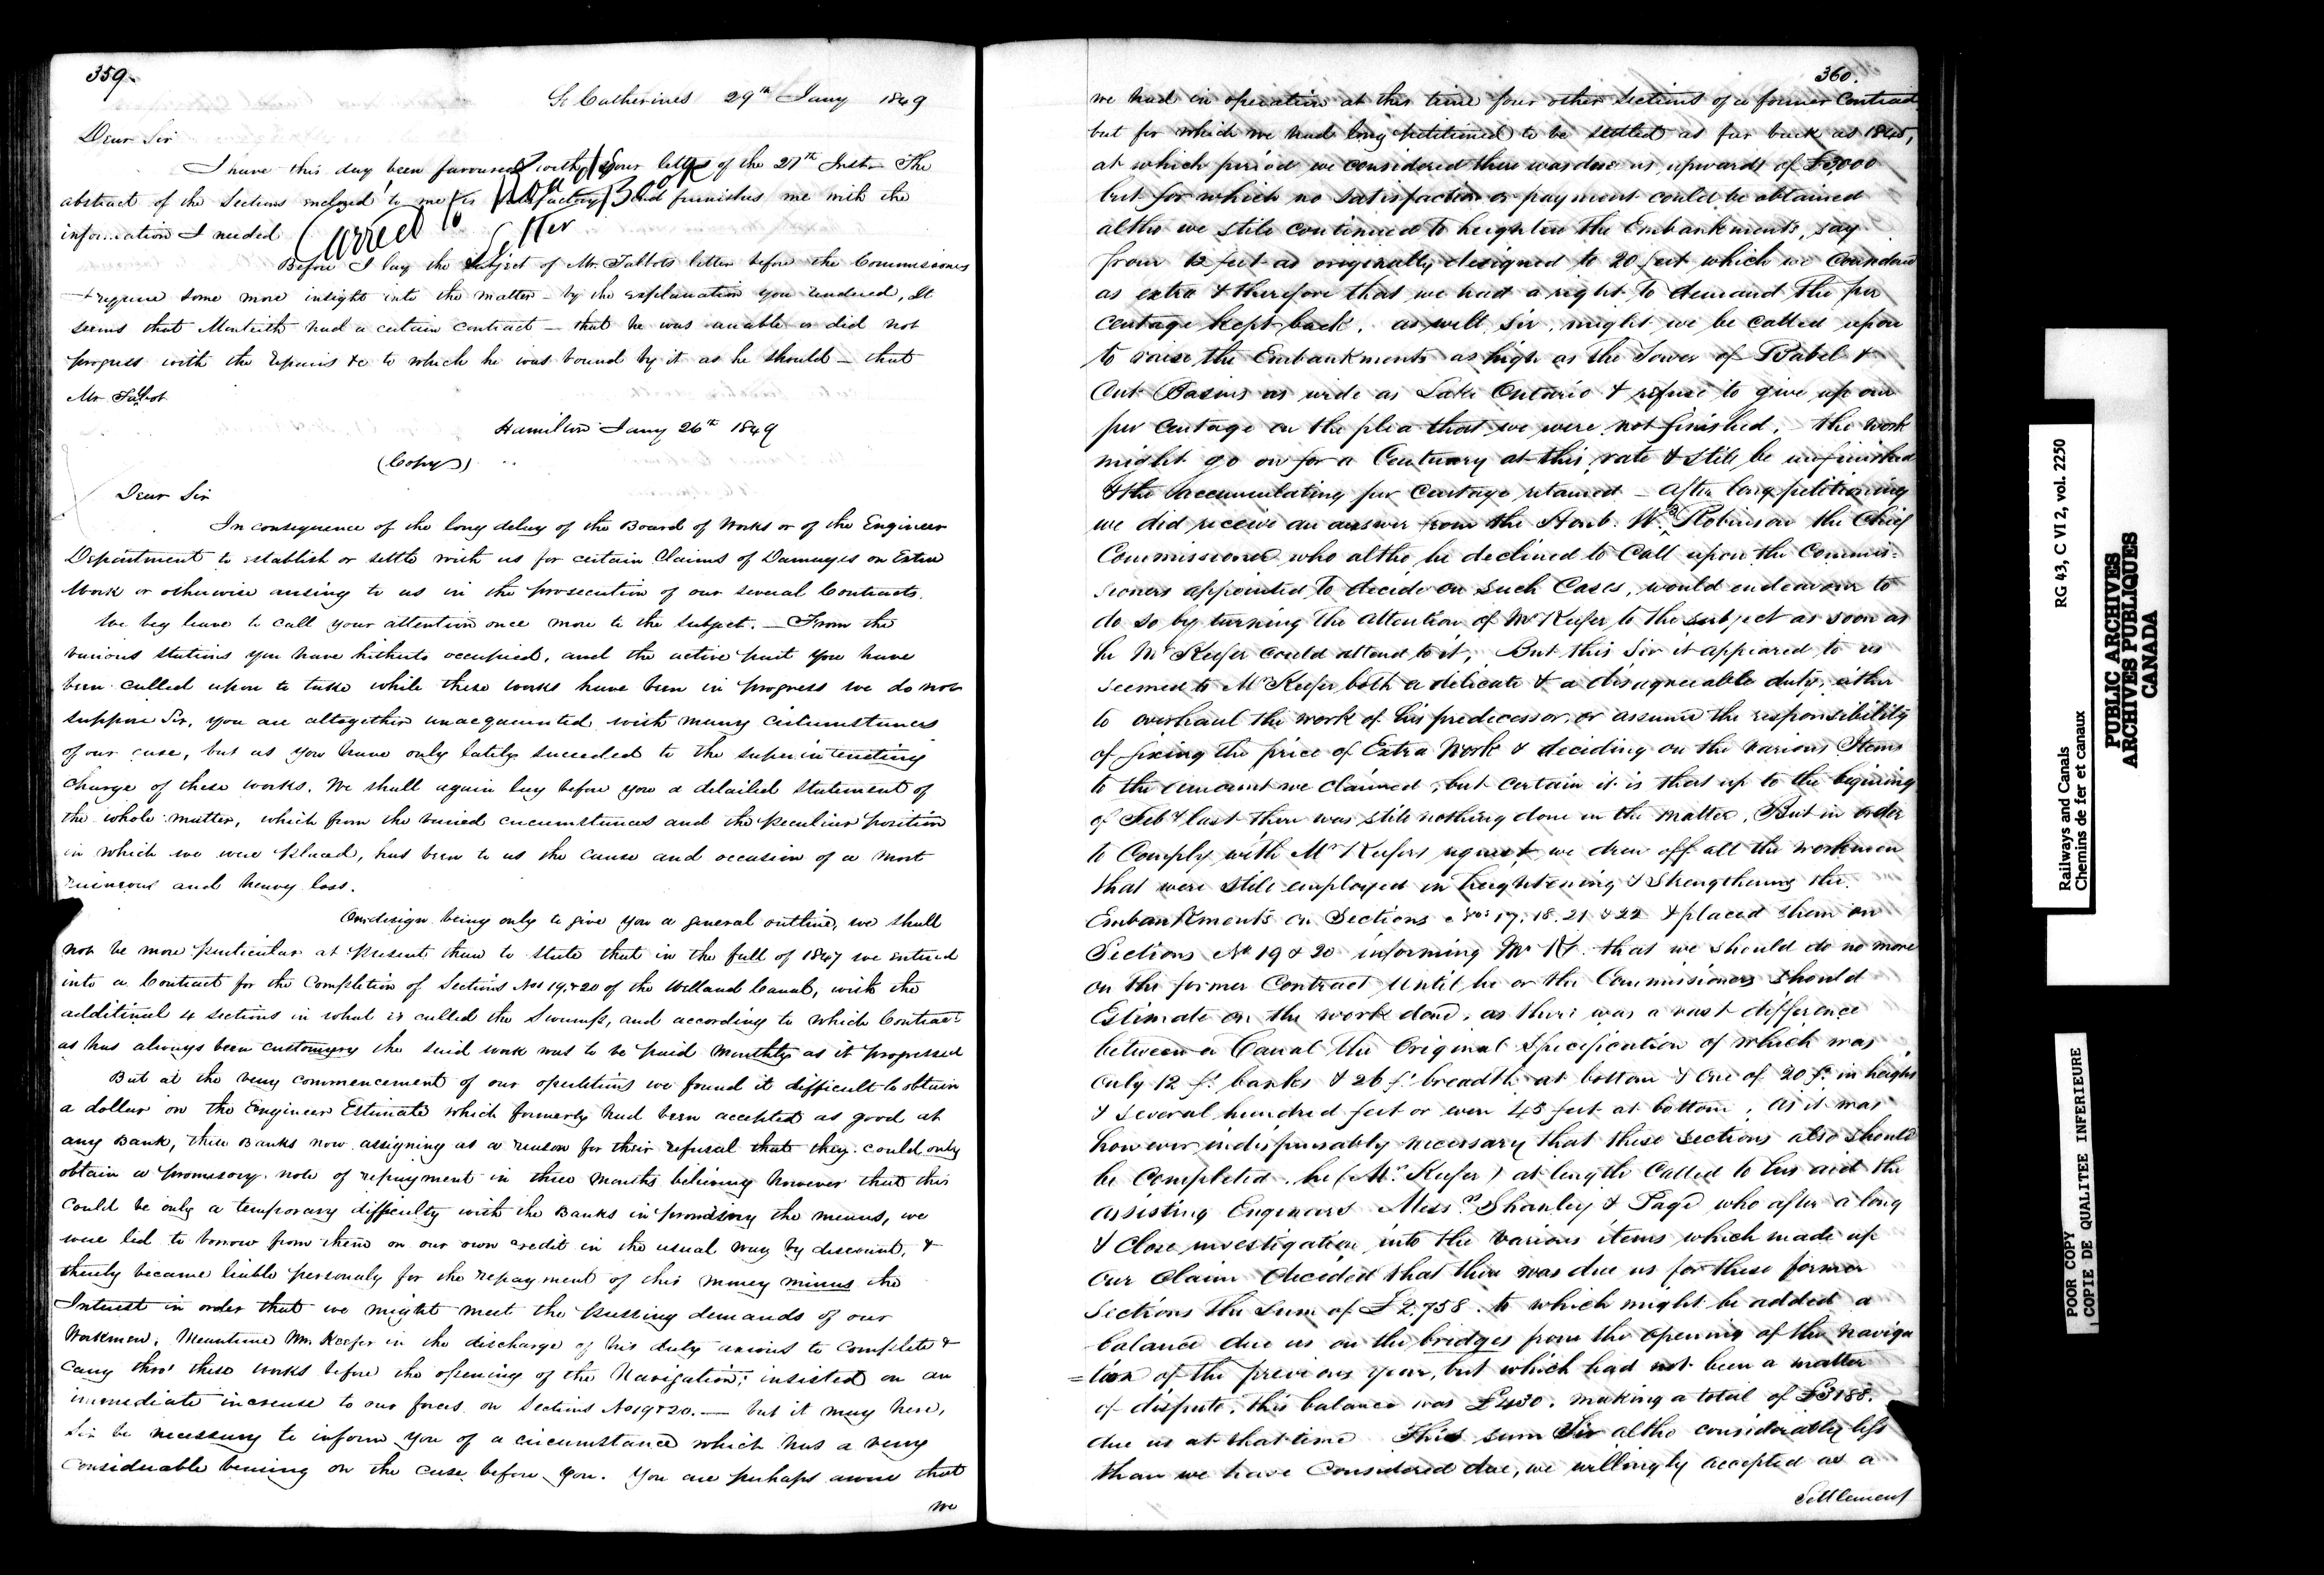 359.
St Catherines 29th Jany 1849
Dear Sir
I have this day been favoured with your letter of the 27th Inst. The
abstract of the Sections enclosed to me is satisfactory and furnishes me with the
information I needed
Carried to Road Book
Letter
Before I lay the subject of Mr. Talbots letter before the Commissioners
I require some more insight into the matter – by the explanation you rendered, It
seems that Monteith had a certain contract – that he was unable or did not
progress with the repairs &c to which he was bound by it as he should – that
Mr Talbot
Hamilton Jany 26th 1849
(Copy)
Dear Sir
In consequence of the long delay of the Board of Works or of the Engineer
Department to establish or settle with us for certain Claims of Damages on Extra
Work or otherwise arising to us in the prosecution of our several Contracts.
We beg leave to call your attention once more to the subject. – From the
various stations you have hitherto occupied, and the active part you have
been called upon to take while these works have been in progress we do not
suppose Sir, you are altogether unacquainted with many circumstances
of our case, but as you have only lately succeeded to the superintending
charge of these works. We shall again lay before you a detailed statement of
the whole matter, which from the varied circumstances and the peculiar position
in which we were placed, has been to us the cause and occasion of a most
ruinous and heavy loss.
Our design being only to give you a general outline, we shall
not be more particular at present than to state that in the fall of 1847 we entered
into a Contract for the Completion of Sections Nos 19 & 20 of the Welland Canal, with the
additional 4 sections in what is called the Swamp, and according to which Contract
as has always been customary the said work was to be paid Monthly as it progressed
But at the very commencement of our operations we found it difficult to obtain
a dollar on the Engineer Estimate which formerly had been accepted as good at
any Bank, these Banks now assigning as a reason for their refusal that they could only
obtain a promisory note of repayment in three Months believing however that this
could be only a temporary difficulty with the Banks in promisory the means, we
were led to borrow from them on our own credit in the usual way by discount, &
thereby became liable personaly for the repayment of this money minus the
Interest in order that we might meet the pressing demands of our
Workmen. Meantime Mr. Keefer in the discharge of his duty anxious to complete &
carry thro' these works before the opening of the Navigation, insisted on an
immediate increase to our forces on Sections No 19 & 20. — but it may here,
Sir be necessary to inform you of a circumstance which has a very
considerable bearing on the case before you. You are perhaps aware that
we
360.
we had in operation at this time four other sections of a former Contract
but for which we had long petitioned to be settled as far back as 1845,
at which period we considered there was due us upwards of £3,000
but for which no satisfaction or payment could be obtained
altho we still continued to heighten the Embankments, say
from 12 feet as originally designed to 20 feet which we considered
as extra & therefore that we had a right to demand the per
centage kept back. as well Sir, might we be called upon
to raise the Embankments as high as the Tower of Babel &
Cut Basins as wide as Lake Ontario & refuse to give up our
per Centage on the plea that we were not finished. The work
might go on for a Centuary at this rate & still be unfinished
& the accumulating per Centage retained – After long petitioning
we did receive an answer from the Honb. W. B Robinson the Chief
Commissioner who altho he declined to Call upon the Commis-
sioners appointed to decide on such Cases, would endeavour to
do so by turning the attention of Mr Keefer to the subject as soon as
he Mr Keefer could attend to it; But this Sir it appeared to us
seemed to Mr Keefer both a delicate & a disagreeable duty, either
to overhaul the work of his predecessor, or assume the responsibility
of fixing the price of Extra Work & deciding on the various Items
to the amount we claimed, but certain it is that up to the begining
of Feby last there was still nothing done in the matter. But in order
to Comply with Mr Keefers request we drew off all the workmen
that were still employed in heightening & strengthening the
Embankments on Sections Nos 17. 18. 21 & 22 & placed them on
Sections No 19 & 20 informing Mr K. that we should do no more
on the former Contract until he or the Commissioners should
Estimate on the work done, as there was a vast difference
between a Canal the Original Specification of which was
only 12 ft banks & 26 ft breadth at bottom & one of 20 ft in height
& several hundred feet or even 45 feet at bottom. As it was
however indispensably necessary that these sections also should
be Completed, he (Mr Keefer) at length Called to his aid the
assisting Engineers Messrs Shanley & Page who after a long
& close investigation into the various items which made up
our Claim decided that there was due us for these former
Sections the sum of £2,758. to which might be added a
balance due us on the bridges from the opening of the naviga
=tion of the previous year, but which had not been a matter
of dispute, this balance was £430. making a total of £3188.
due us at that time This sum Sir altho considerably less
than we have Considered due, we willingly accepted as a
Settlement
Railways and Canals
Chemins de fer et canaux
RG 43, C VI 2, vol. 2250
PUBLIC ARCHIVES
ARCHIVES PUBLIQUES
CANADA
POOR COPY
COPIE DE QUALITEE INFERIEURE